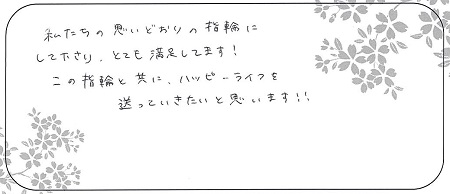 私たちの思いどおりの指輪に
して下さり、とても満足してます!
この指輪と共に、ハッピーライフを
送っていきたいと思います!!